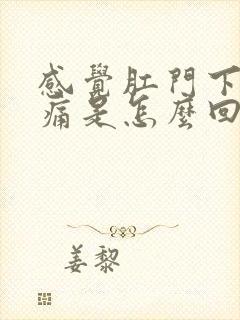 感覺肛門下
痛是怎麼回
姜黎